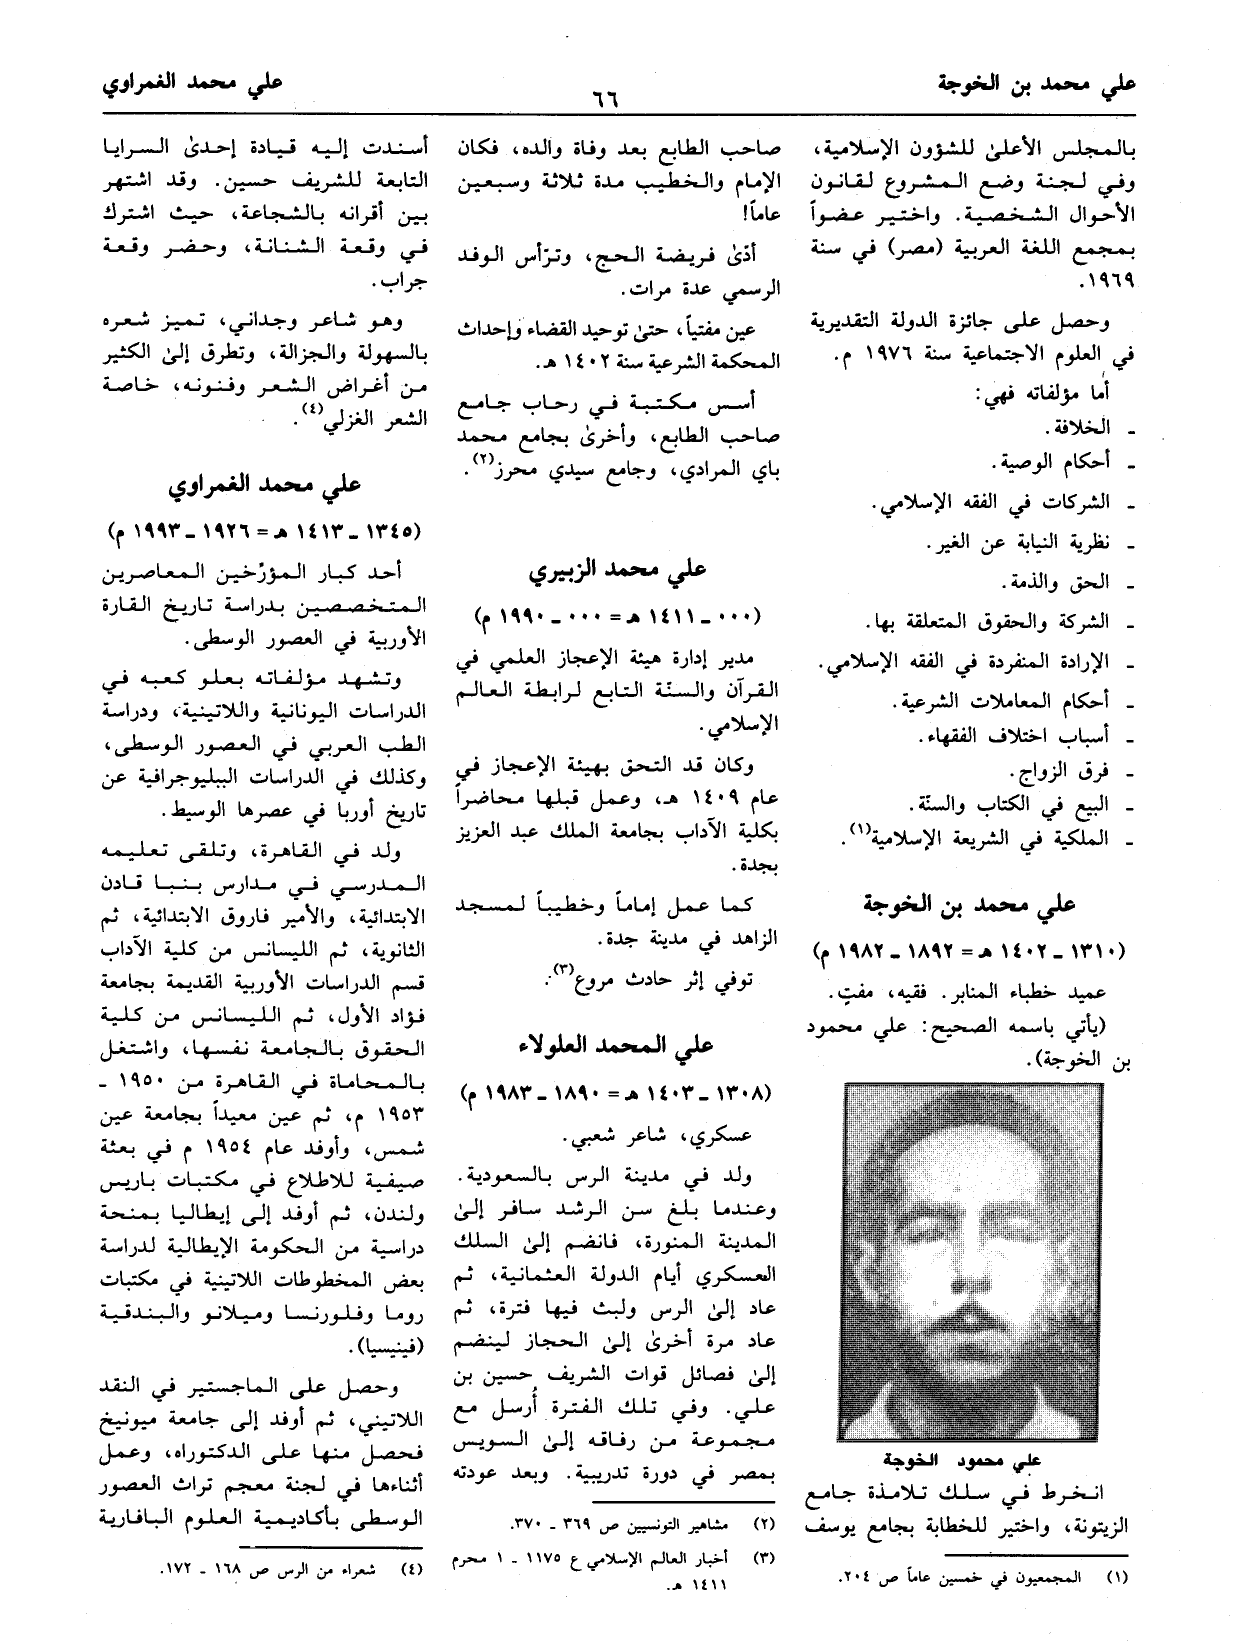 علي محمد بن الخوجة
٦٦
علي محمد الغمراوي
بالمجلس الأعلىٰ للشؤون الإسلامية،
وفي لجنة وضع المشروع لقانون
الأحوال الشخصية. واختير عضواً
بمجمع اللغة العربية (مصر) في سنة
١٩٦٩.
وحصل على جائزة الدولة التقديرية
في العلوم الاجتماعية سنة ١٩٧٦ م.
أما مؤلفاته فهي:
ـ الخلافة.
ـ أحكام الوصية.
ـ الشركات في الفقه الإسلامي.
ـ نظرية النيابة عن الغير.
ـ الحق والذمة.
ـ الشركة والحقوق المتعلقة بها.
ـ الإرادة المنفردة في الفقه الإسلامي.
ـ أحكام المعاملات الشرعية.
ـ أسباب اختلاف الفقهاء.
ـ فرق الزواج.
ـ البيع في الكتاب والسنّة.
ـ الملكية في الشريعة الإسلامية(١).
علي محمد بن الخوجة
(١٣١٠ ـ ١٤٠٢ هـ = ١٨٩٢ ـ ١٩٨٢ م)
عميد خطباء المنابر. فقيه، مفتٍ.
(يأتي باسمه الصحيح: علي محمود
بن الخوجة).
علي محمود الخوجة
انخرط في سلك تلامذة جامع
الزيتونة، واختير للخطابة بجامع يوسف
(١) المجمعيون في خمسين عاماً ص ٢٠٤.
صاحب الطابع بعد وفاة والده، فكان
الإمام والخطيب مدة ثلاثة وسبعين
عاماً!
أدّىٰ فريضة الحج، وترأس الوفد
الرسمي عدة مرات.
عين مفتياً، حتىٰ توحيد القضاء وإحداث
المحكمة الشرعية سنة ١٤٠٢ هـ.
أسس مكتبة في رحاب جامع
صاحب الطابع، وأخرىٰ بجامع محمد
باي المرادي، وجامع سيدي محرز(٢).
علي محمد الزبيري
(٠٠٠ ـ ١٤١١ هـ = ٠٠٠ ـ ١٩٩٠ م)
مدير إدارة هيئة الإعجاز العلمي في
القرآن والسنّة التابع لرابطة العالم
الإسلامي.
وكان قد التحق بهيئة الإعجاز في
عام ١٤٠٩ هـ، وعمل قبلها محاضراً
بكلية الآداب بجامعة الملك عبد العزيز
بجدة.
كما عمل إماماً وخطيباً لمسجد
الزاهد في مدينة جدة.
توفي إثر حادث مروع(٣).
علي المحمد العلولاء
(١٣٠٨ ـ ١٤٠٣ هـ = ١٨٩٠ ـ ١٩٨٣ م)
عسكري، شاعر شعبي.
ولد في مدينة الرس بالسعودية.
وعندما بلغ سن الرشد سافر إلىٰ
المدينة المنورة، فانضم إلىٰ السلك
العسكري أيام الدولة العثمانية، ثم
عاد إلىٰ الرس ولبث فيها فترة، ثم
عاد مرة أخرىٰ إلىٰ الحجاز لينضم
إلىٰ فصائل قوات الشريف حسين بن
علي. وفي تلك الفترة أُرسل مع
مجموعة من رفاقه إلىٰ السويس
بمصر في دورة تدريبية. وبعد عودته
(٢) مشاهير التونسيين ص ٣٦٩ ـ ٣٧٠.
(٣) أخبار العالم الإسلامي ع ١١٧٥ ـ ١ محرم
١٤١١ هـ.
أسندت إليه قيادة إحدىٰ السرايا
التابعة للشريف حسين. وقد اشتهر
بين أقرانه بالشجاعة، حيث اشترك
في وقعة الشنانة، وحضر وقعة
جراب.
وهو شاعر وجداني، تميز شعره
بالسهولة والجزالة، وتطرق إلىٰ الكثير
من أغراض الشعر وفنونه، خاصة
الشعر الغزلي(٤).
علي محمد الغمراوي
(١٣٤٥ ـ ١٤١٣ هـ = ١٩٢٦ ـ ١٩٩٣ م)
أحد كبار المؤرّخين المعاصرين
المتخصصين بدراسة تاريخ القارة
الأوربية في العصور الوسطى.
وتشهد مؤلفاته بعلو كعبه في
الدراسات اليونانية واللاتينية، ودراسة
الطب العربي في العصور الوسطى،
وكذلك في الدراسات الببليوجرافية عن
تاريخ أوربا في عصرها الوسيط.
ولد في القاهرة، وتلقى تعليمه
المدرسي في مدارس بنبا قادن
الابتدائية، والأمير فاروق الابتدائية، ثم
الثانوية، ثم الليسانس من كلية الآداب
قسم الدراسات الأوربية القديمة بجامعة
فؤاد الأول، ثم الليسانس من كلية
الحقوق بالجامعة نفسها، واشتغل
بالمحاماة في القاهرة من ١٩٥٠ ـ
١٩٥٣ م، ثم عين معيداً بجامعة عين
شمس، وأوفد عام ١٩٥٤ م في بعثة
صيفية للاطلاع في مكتبات باريس
ولندن، ثم أوفد إلى إيطاليا بمنحة
دراسية من الحكومة الإيطالية لدراسة
بعض المخطوطات اللاتينية في مكتبات
روما وفلورنسا وميلانو والبندقية
(فينيسيا).
وحصل على الماجستير في النقد
اللاتيني، ثم أوفد إلى جامعة ميونيخ
فحصل منها على الدكتوراه، وعمل
أثناءها في لجنة معجم تراث العصور
الوسطى بأكاديمية العلوم البافارية
(٤) شعراء من الرس ص ١٦٨ ـ ١٧٢.